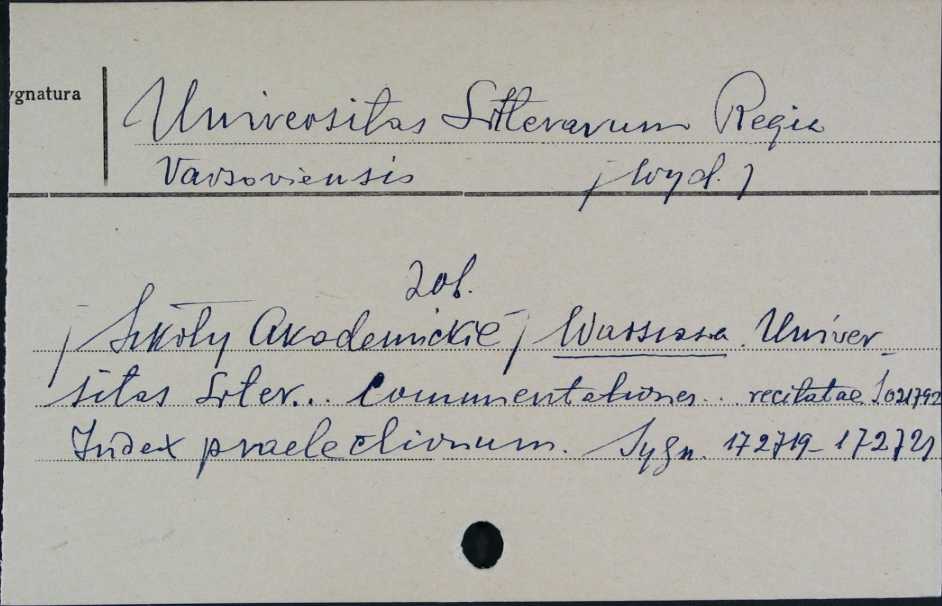 ygnatura
Universitas Litterarum Regia
Varsoviensis / wyd. /
zob.
/ Szkoły Akademickie / Warszawa. Univer-
sitas Liter... Commentationes .. recitatae S021792
Index praelectionum. Sygn. 172719-172721